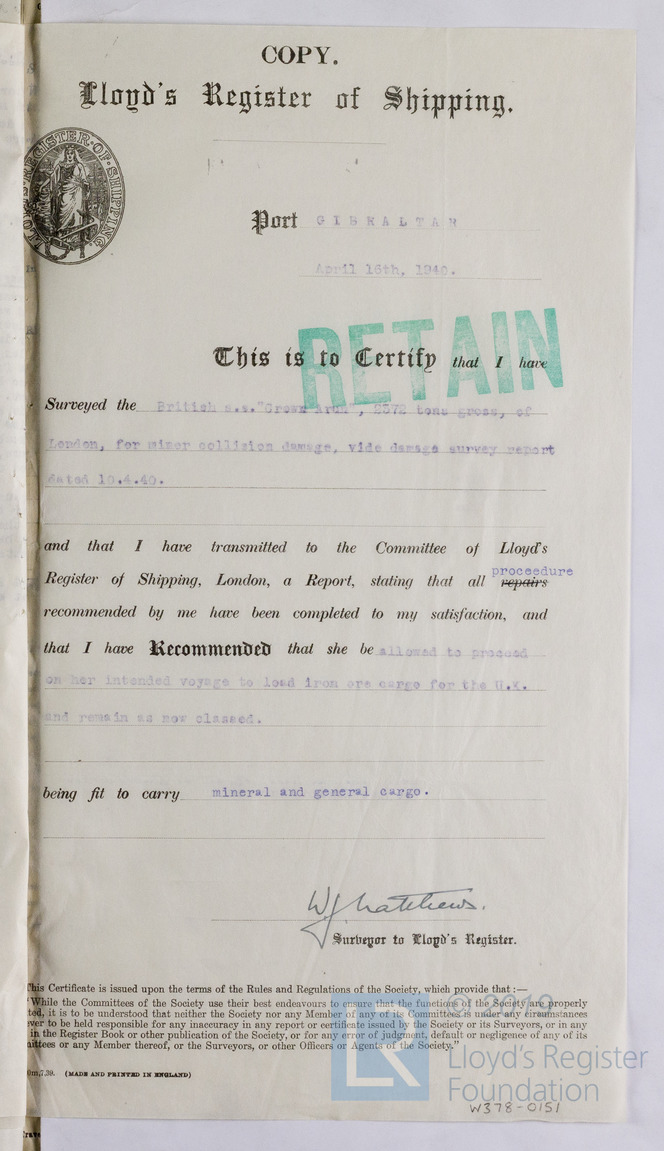 COPY.
Lloyd's Register of Shipping.
LLOYD'S REGISTER OF SHIPPING
Port GIBRALTAR
April 16th, 1940.
RETAIN
This is to Certify that I have
Surveyed the British s.s."Crown Arun", 2372 tons gross, of
London, for minor collision damage, vide damage survey report
dated 10.4.40.
and that I have transmitted to the Committee of Lloyd's
proceedure
Register of Shipping, London, a Report, stating that all repairs
recommended by me have been completed to my satisfaction, and
that I have Recommended that she be allowed to proceed
on her intended voyage to load iron ore cargo for the U.K.
and remain as now classed.
being fit to carry mineral and general cargo.
W J Matthews.
Surveyor to Lloyd's Register.
This Certificate is issued upon the terms of the Rules and Regulations of the Society, which provide that :—
"While the Committees of the Society use their best endeavours to ensure that the functions of the Society are properly
ted, it is to be understood that neither the Society nor any Member of any of its Committees is under any circumstances
ver to be held responsible for any inaccuracy in any report or certificate issued by the Society or its Surveyors, or in any
in the Register Book or other publication of the Society, or for any error of judgment, default or negligence of any of its
ittees or any Member thereof, or the Surveyors, or other Officers or Agents of the Society."
0m,7,39. (MADE AND PRINTED IN ENGLAND)
© 2019
LR
Lloyd's Register
Foundation
W378-0151